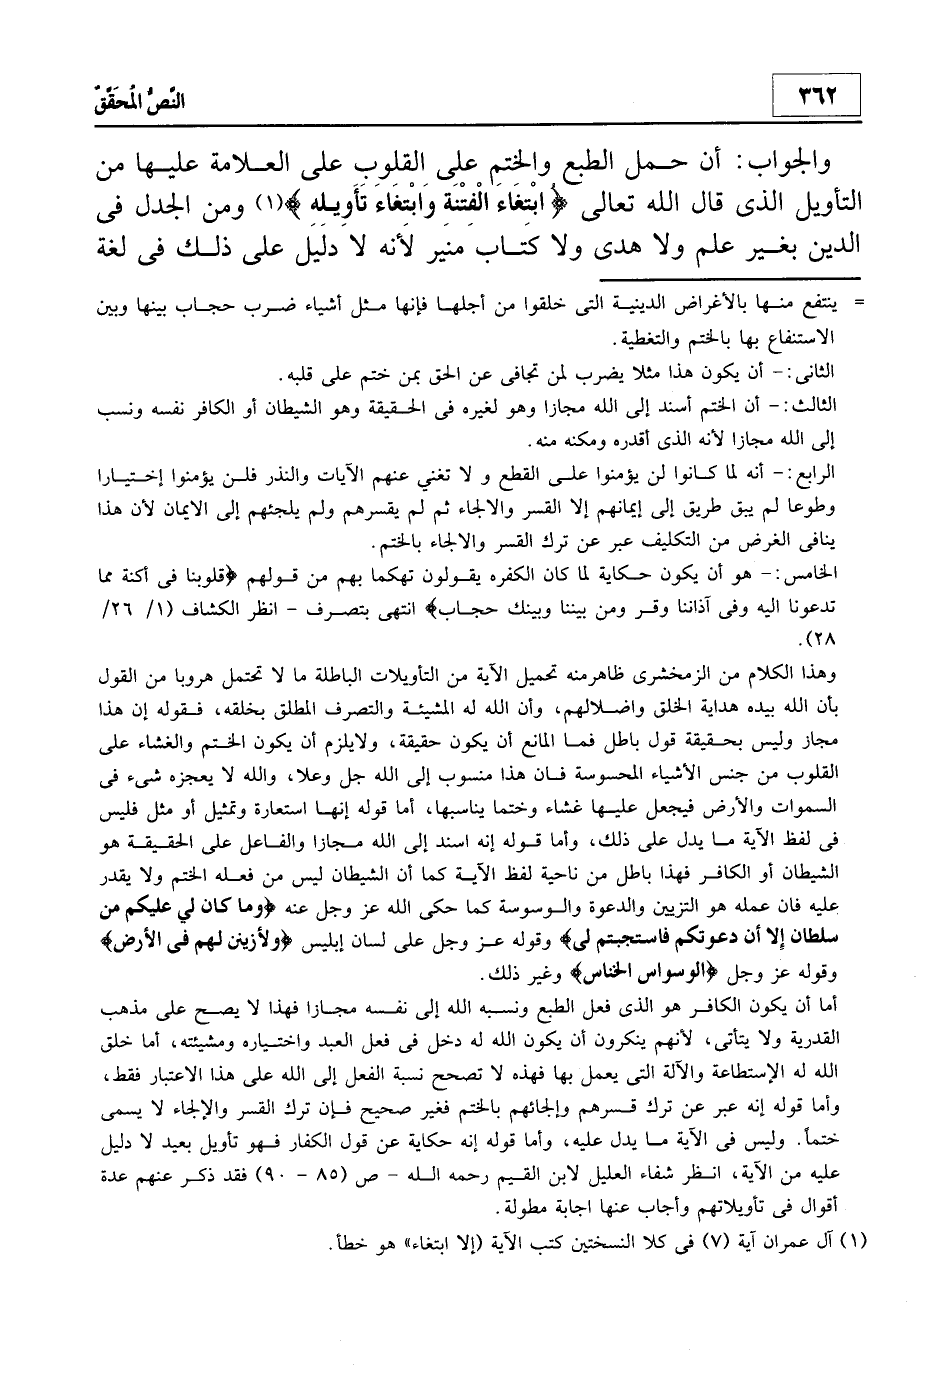 ٣٦٢
النَّصُّ المُحَقَّقُ
والجواب: أن حمل الطبع والختم على القلوب على العلامة عليها من
التأويل الذى قال الله تعالى ﴿ ابْتِغَاءَ الْفِتْنَةِ وَابْتِغَاءَ تَأْوِيلِهِ ﴾(١) ومن الجدل فى
الدين بغير علم ولا هدى ولا كتاب منير لأنه لا دليل على ذلك فى لغة
= ينتفع منها بالأغراض الدينية التى خلقوا من أجلها فإنها مثل أشياء ضرب حجاب بينها وبين
الاستنفاع بها بالختم والتغطية.
الثانى:- أن يكون هذا مثلا يضرب لمن تجافى عن الحق بمن ختم على قلبه.
الثالث:- أن الختم أسند إلى الله مجازا وهو لغيره فى الحقيقة وهو الشيطان أو الكافر نفسه ونسب
إلى الله مجازا لأنه الذى أقدره ومكنه منه.
الرابع:- أنه لما كانوا لن يؤمنوا على القطع و لا تغني عنهم الآيات والنذر فلن يؤمنوا إختيارا
وطوعا لم يبق طريق إلى إيمانهم إلا القسر والالجاء ثم لم يقسرهم ولم يلجئهم إلى الايمان لأن هذا
ينافى الغرض من التكليف عبر عن ترك القسر والالجاء بالختم.
الخامس:- هو أن يكون حكاية لما كان الكفره يقولون تهكما بهم من قولهم ﴿قلوبنا فى أكنة مما
تدعونا اليه وفى آذاننا وقر ومن بيننا وبينك حجاب﴾ انتهى بتصرف - انظر الكشاف (١/ ٢٦/
٢٨).
وهذا الكلام من الزمخشرى ظاهرمنه تحميل الآية من التأويلات الباطلة ما لا تحتمل هروبا من القول
بأن الله بيده هداية الخلق واضلالهم، وأن الله له المشيئة والتصرف المطلق بخلقه، فقوله إن هذا
مجاز وليس بحقيقة قول باطل فما المانع أن يكون حقيقة، ولايلزم أن يكون الختم والغشاء على
القلوب من جنس الأشياء المحسوسة فان هذا منسوب إلى الله جل وعلا، والله لا يعجزه شىء فى
السموات والأرض فيجعل عليها غشاء وختما يناسبها، أما قوله إنها استعارة وتمثيل أو مثل فليس
فى لفظ الآية ما يدل على ذلك، وأما قوله إنه اسند إلى الله مجازا والفاعل على الحقيقة هو
الشيطان أو الكافر فهذا باطل من ناحية لفظ الآية كما أن الشيطان ليس من فعله الختم ولا يقدر
عليه فان عمله هو التزيين والدعوة والوسوسة كما حكى الله عز وجل عنه ﴿وما كان لي عليكم من
سلطان إلا أن دعوتكم فاستجبتم لى﴾ وقوله عز وجل على لسان إبليس ﴿ولأزينن لهم فى الأرض﴾
وقوله عز وجل ﴿الوسواس الخناس﴾ وغير ذلك.
أما أن يكون الكافر هو الذى فعل الطبع ونسبه الله إلى نفسه مجازا فهذا لا يصح على مذهب
القدرية ولا يتأتى، لأنهم ينكرون أن يكون الله له دخل فى فعل العبد واختياره ومشيئته، أما خلق
الله له الإستطاعة والآلة التى يعمل بها فهذه لا تصحح نسبة الفعل إلى الله على هذا الاعتبار فقط،
وأما قوله إنه عبر عن ترك قسرهم وإلجائهم بالختم فغير صحيح فإن ترك القسر والإلجاء لا يسمى
ختماً. وليس فى الآية ما يدل عليه، وأما قوله إنه حكاية عن قول الكفار فهو تأويل بعيد لا دليل
عليه من الآية، انظر شفاء العليل لابن القيم رحمه الله - ص (٨٥ - ٩٠) فقد ذكر عنهم عدة
أقوال فى تأويلاتهم وأجاب عنها اجابة مطولة.
(١) آل عمران آية (٧) فى كلا النسختين كتب الآية (إلا ابتغاء» هو خطأ.